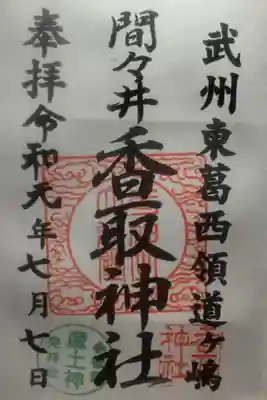 武州東葛西領道ヶ嶋
間々井
香取神社
奉拝令和元年七月七日